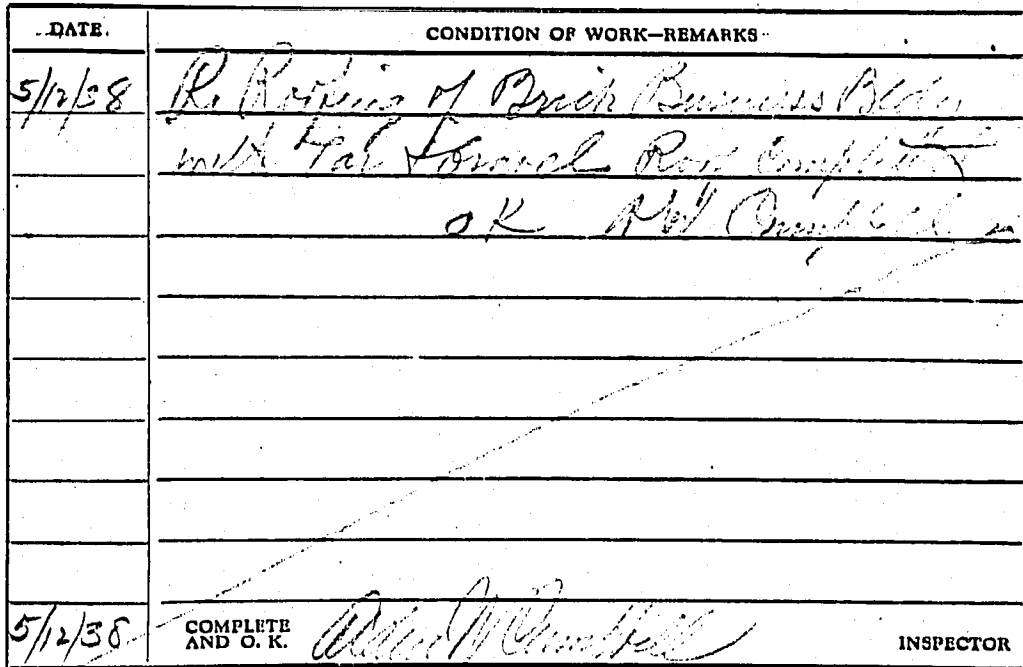 DATE. CONDITION OF WORK—REMARKS
5/12/38 Re Roofing of Brick Business Bldg
with Tar & Gravel Roof Completed
OK AW Campbell
5/12/38 COMPLETE AND O. K. Campbell INSPECTOR